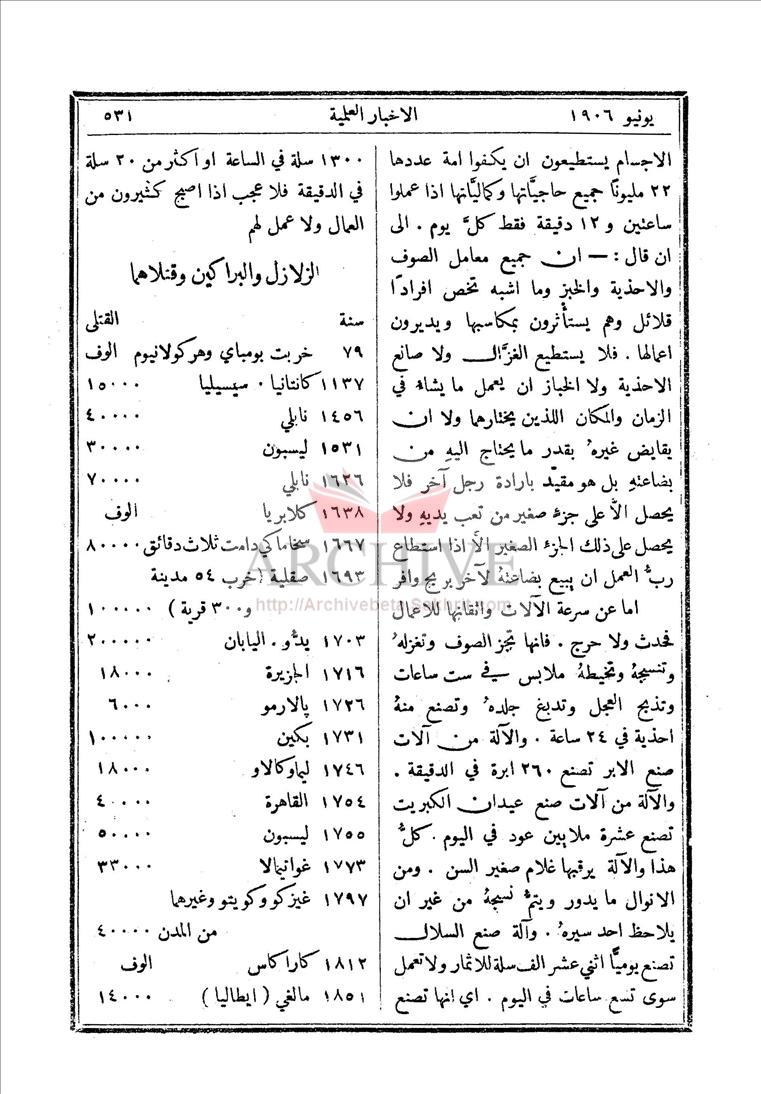 يونيو ١٩٠٦
الاخبار العلمية
٥٣١
الاجسام يستطيعون ان يكفوا امة عددها
٢٢ مليونًا جميع حاجيَّاتها وكماليَّاتها اذا عملوا
ساعتين و ١٢ دقيقة فقط كلَّ يوم . الى
ان قال : — ان جميع معامل الصوف
والاحذية والخبز وما اشبه تخص افرادًا
قلائل وهم يستأثرون بمكاسبها ويديرون
اعمالها . فلا يستطيع الغزَّال ولا صانع
الاحذية ولا الخباز ان يعمل ما يشاء في
الزمان والمكان اللذين يختارهما ولا ان
يقايض غيرهُ بقدر ما يحتاج اليهِ من
بضاعتهِ بل هو مقيّد بارادة رجل آخر فلا
يحصل الَّا على جزء صغير من تعب يديهِ ولا
يحصل على ذلك الجزء الصغير الَّا اذا استطاع
ربُّ العمل ان يبيع بضاعتهُ لآخر بربح وافر
اما عن سرعة الآلات واتقانها للاعمال
فحدث ولا حرج . فانها تجز الصوف وتغزلهُ
وتنسجهُ وتخيطهُ ملابس في ست ساعات
وتذبح العجل وتدبغ جلدهُ وتصنع منهُ
احذية في ٢٤ ساعة . والآلة من آلات
صنع الابر تصنع ٢٦٠ ابرة في الدقيقة .
والآلة من آلات صنع عيدان الكبريت
تصنع عشرة ملايين عود في اليوم . كلُّ
هذا والآلة يرقبها غلام صغير السن . ومن
الانوال ما يدور ويتمُّ نسيجهُ من غير ان
يلاحظ احد سيرهُ . وآلة صنع السلال
تصنع يوميًّا اثني عشر الف سلة للاثمار ولا تعمل
سوى تسع ساعات في اليوم . اي انها تصنع
١٣٠٠ سلة في الساعة او اكثر من ٢٠ سلة
في الدقيقة فلا عجب اذا اصبح كثيرون من
العمال ولا عمل لهم
الزلازل والبراكين وقتلاهما
سنة القتلى
٧٩ خربت بومباي وهركولانيوم الوف
١١٣٧ كانتانيا . سيسيليا ١٥٠٠٠
١٤٥٦ نابلي ٤٠٠٠٠
١٥٣١ ليسبون ٣٠٠٠٠
١٦٢٦ نابلي ٧٠٠٠٠
١٦٣٨ كلابريا الوف
١٦٦٧ سخاماكي دامت ثلاث دقائق ٨٠٠٠٠
١٦٩٣ صقلية (خرب ٥٤ مدينة
و ٣٠٠ قرية ) ١٠٠٠٠٠
١٧٠٣ يدُّو . اليابان ٢٠٠٠٠٠
١٧١٦ الجزيرة ١٨٠٠٠
١٧٢٦ پالارمو ٦٠٠٠
١٧٣١ بكين ١٠٠٠٠٠
١٧٤٦ ليما وكالاو ١٨٠٠٠
١٧٥٤ القاهرة ٤٠٠٠٠
١٧٥٥ ليسبون ٥٠٠٠٠
١٧٧٣ غواتيمالا ٣٣٠٠٠
١٧٩٧ غيزكو وكويتو وغيرهما
من المدن ٤٠٠٠٠
١٨١٢ كاراكاس الوف
١٨٥١ مالفي ( ايطاليا ) ١٤٠٠٠
ARCHIVE
http://Archivebeta.Sakhrit.com